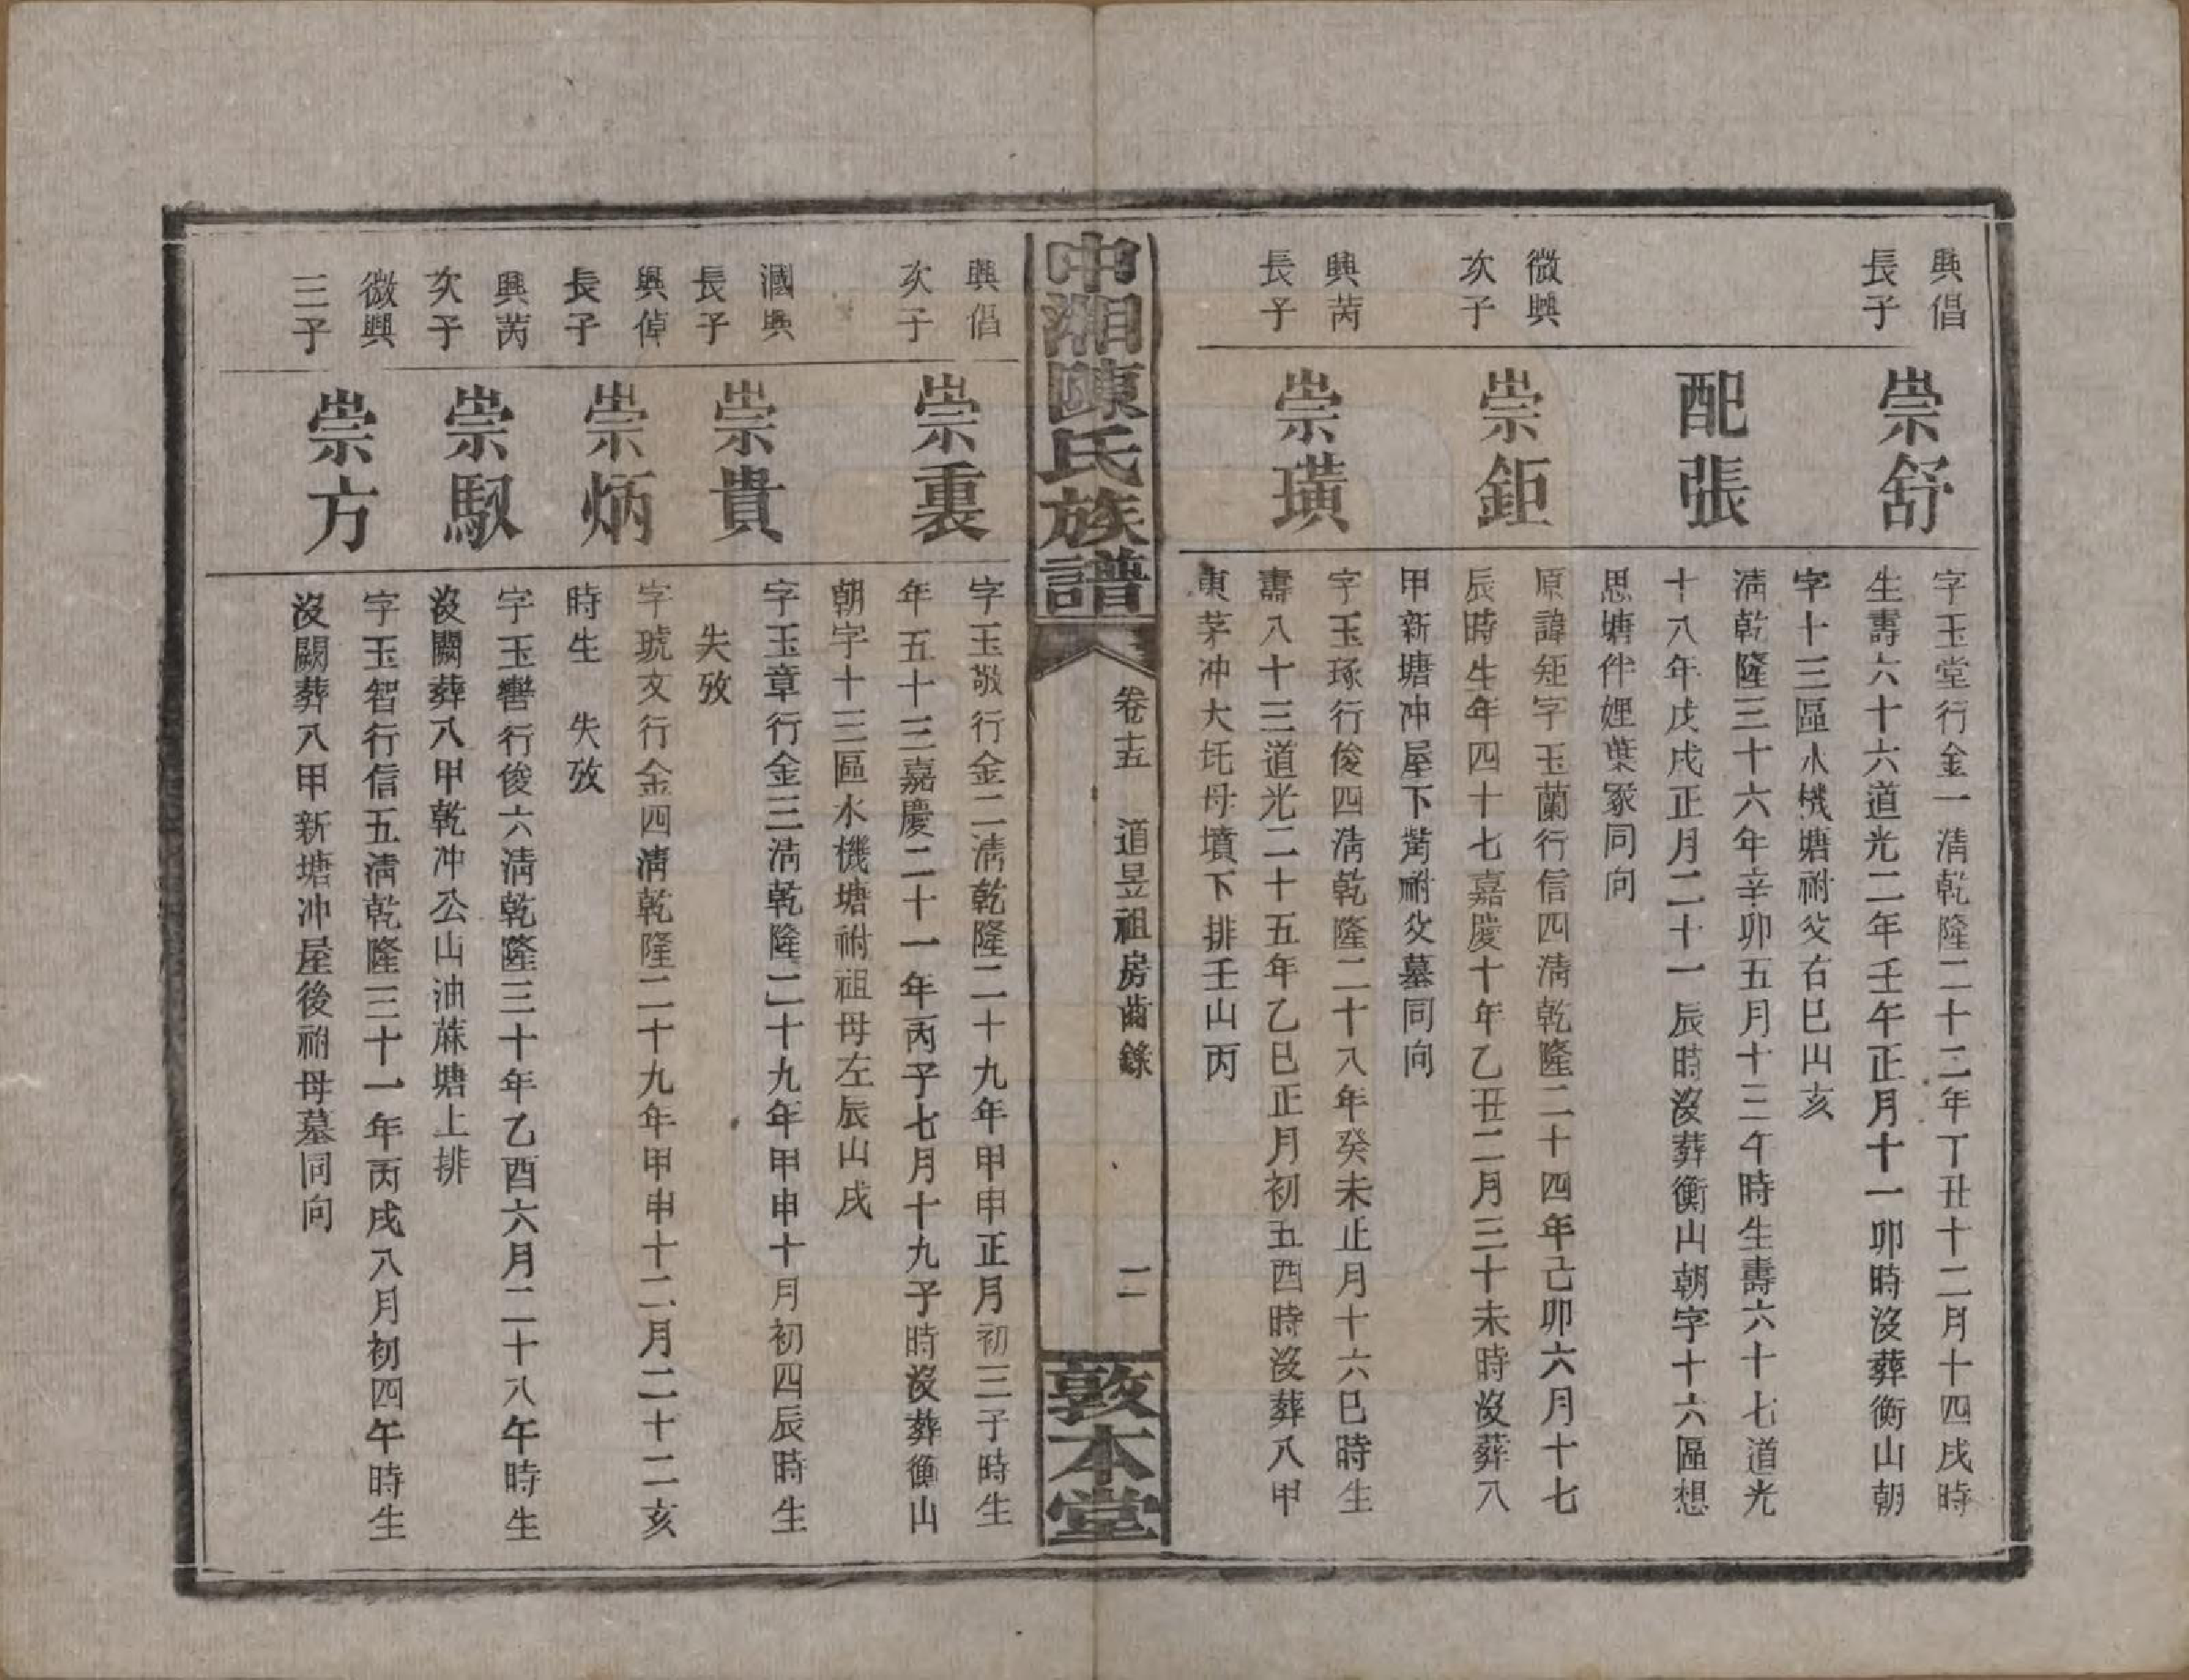 興倡
長子
崇舒
字玉堂行金一清乾隆二十二年丁丑十二月十四戌時
生壽六十六道光二年壬午正月十一卯時沒葬衡山朝
字十三區水機塘祔父右巳山亥
配張
清乾隆三十六年辛卯五月十三午時生壽六十七道光
十八年戊戌正月二十一辰時沒葬衡山朝字十六區想
思塘伴娌葉冢同向
微興
次子
崇鉅
原諱矩字玉蘭行信四清乾隆二十四年己卯六月十七
辰時生年四十七嘉慶十年乙丑二月三十未時沒葬八
甲新塘冲屋下嵜祔父墓同向
興芮
長子
崇璜
字玉琢行俊四清乾隆二十八年癸未正月十六巳時生
壽八十三道光二十五年乙巳正月初五酉時沒葬八甲
東茅冲大坉母墳下排壬山丙
中湘陳氏族譜
卷十五
道昱祖房齒錄
二
敦本堂
興倡
次子
崇裏
字玉敬行金二清乾隆二十九年甲申正月初三子時生
年五十三嘉慶二十一年丙子七月十九子時沒葬衡山
朝字十三區水機塘祔祖母左辰山戌
漍興
長子
崇貴
字玉章行金三清乾隆二十九年甲申十月初四辰時生
失攷
興倬
長子
崇炳
字琥文行金四清乾隆二十九年甲申十二月二十二亥
時生 失攷
興芮
次子
崇馭
字玉轡行俊六清乾隆三十年乙酉六月二十八午時生
沒闕葬八甲乾冲公山油蔴塘上排
微興
三子
崇方
字玉智行信五清乾隆三十一年丙戌八月初四午時生
沒闕葬八甲新塘冲屋後祔母墓同向